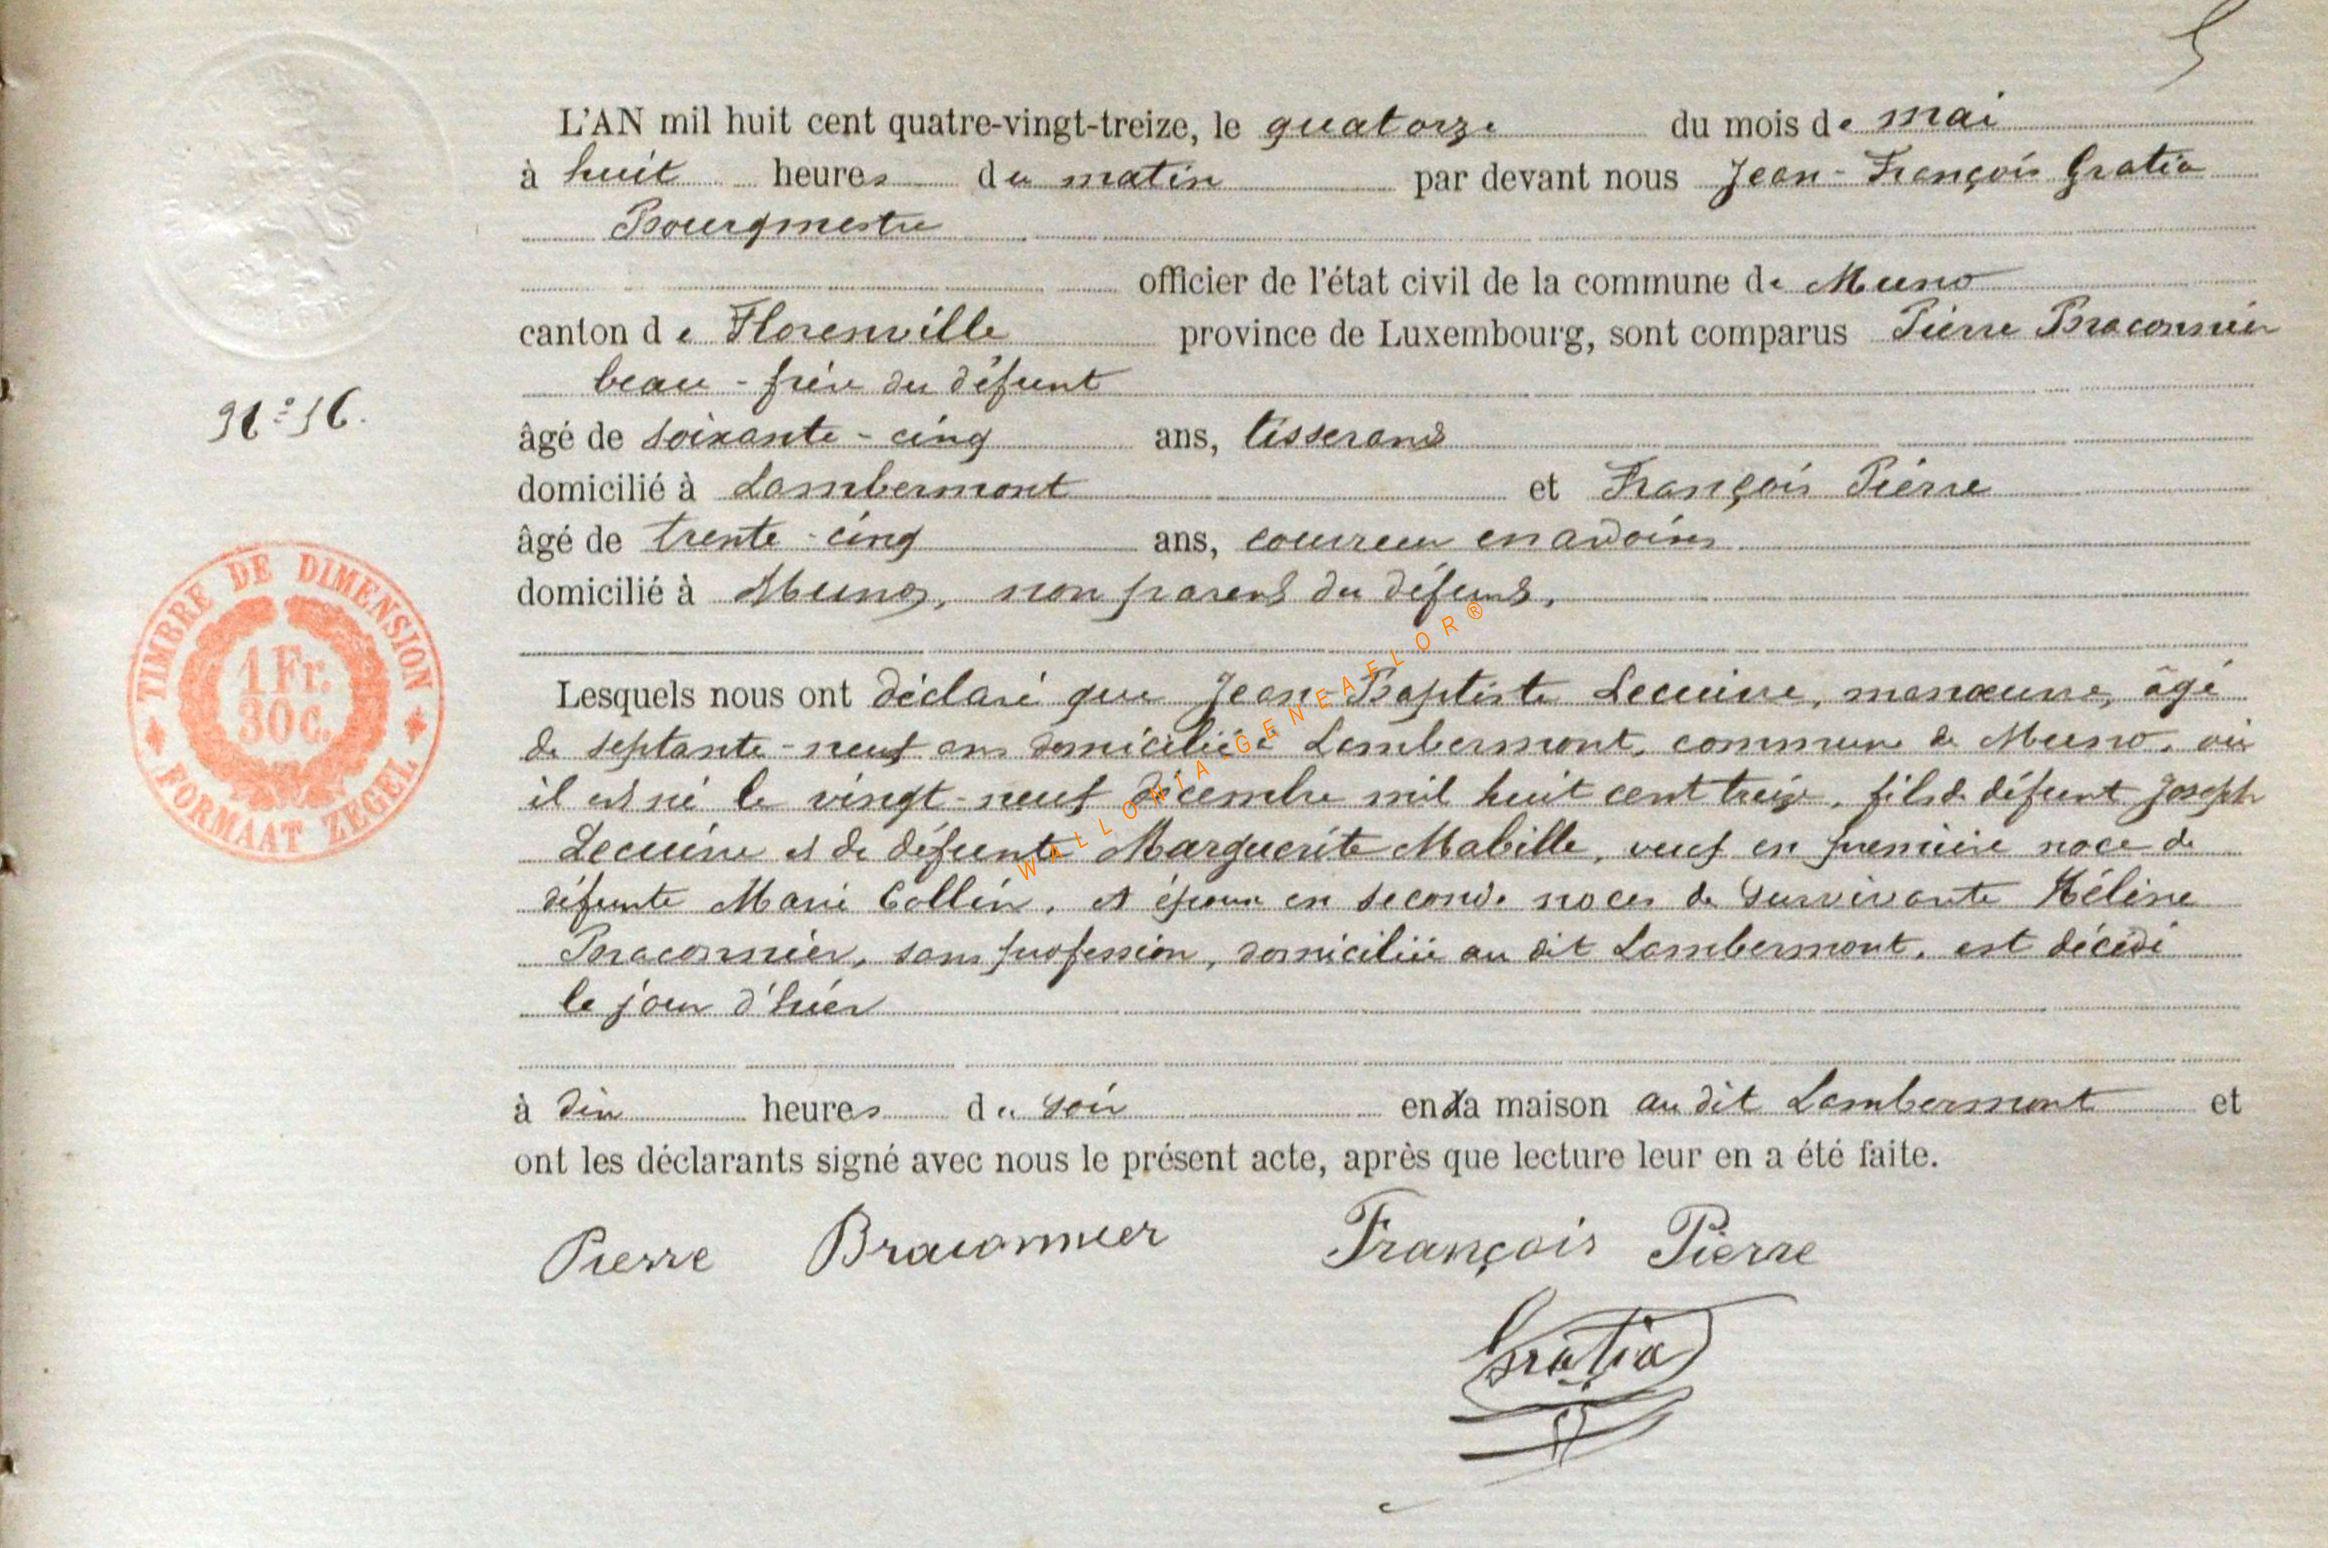 5
L'AN mil huit cent quatre-vingt-treize, le quatorze du mois de mai
à huit heures du matin par devant nous Jean-François Gratia
Bourgmestre
officier de l'état civil de la commune de Muno
canton de Florenville province de Luxembourg, sont comparus Pierre Braconnier
beau-frère du défunt
N° 16.
âgé de soixante-cinq ans, tisserand
domicilié à Lambermont et François Pierre
âgé de trente-cinq ans, couvreur en ardoises
domicilié à Muno, non parent du défunt,
TIMBRE DE DIMENSION
1 Fr.
30 c.
FORMAAT ZEGEL
Lesquels nous ont déclaré que Jean-Baptiste Lecuivre, manœuvre, âgé
de septante-neuf ans domicilié à Lambermont, commune de Muno, où
il est né le vingt-neuf décembre mil huit cent treize, fils de défunt Joseph
Lecuivre et de défunte Marguerite Mabille, veuf en première noce de
défunte Marie Collin, et époux en seconde noces de survivante Hélène
Braconnier, sans profession, domiciliée au dit Lambermont, est décédé
le jour d'hier
à dix heures du soir en sa maison au dit Lambermont et
ont les déclarants signé avec nous le présent acte, après que lecture leur en a été faite.
Pierre Braconnier François Pierre
Gratia
WALLONIA GENEAFLOR®